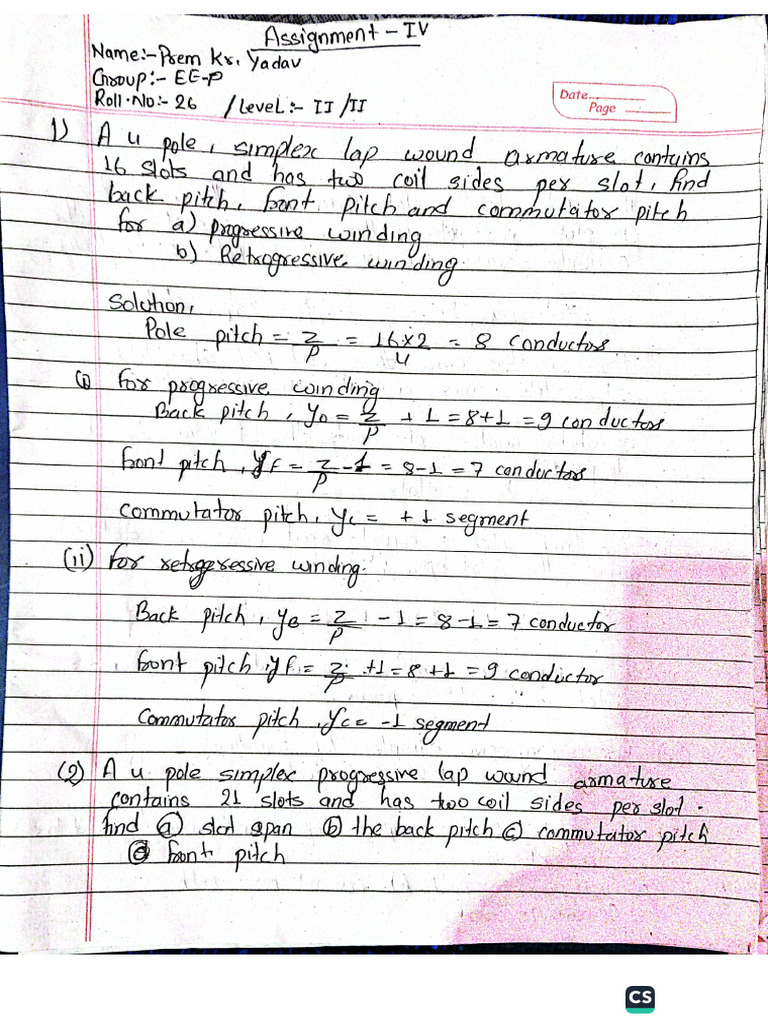 Assignment - IV
Name:- Prem Kr. Yadav
Group:- EE-P
Roll.No:- 26 / Level:- II/II
Date
Page
1) A 4 pole, simplex lap wound armature contains
16 slots and has two coil sides per slot, find
back pitch, front pitch and commutator pitch
for a) progressive winding
b) Retrogressive winding.
Solution,
Pole pitch = Z/P = 16×2/4 = 8 conductors
(i) for progressive winding
Back pitch, YB = Z/P + 1 = 8+1 = 9 conductors
front pitch, YF = Z/P - 1 = 8-1 = 7 conductors
Commutator pitch, Yc = +1 segment
(ii) for retrogressive winding.
Back pitch, YB = Z/P - 1 = 8-1 = 7 conductor
front pitch, YF = Z/P +1 = 8+1 = 9 conductor
Commutator pitch, Yc = -1 segment
(2) A 4 pole simplex progressive lap wound armature
contains 21 slots and has two coil sides per slot.
find (a) slot span (b) the back pitch (c) commutator pitch
(d) front pitch
CS